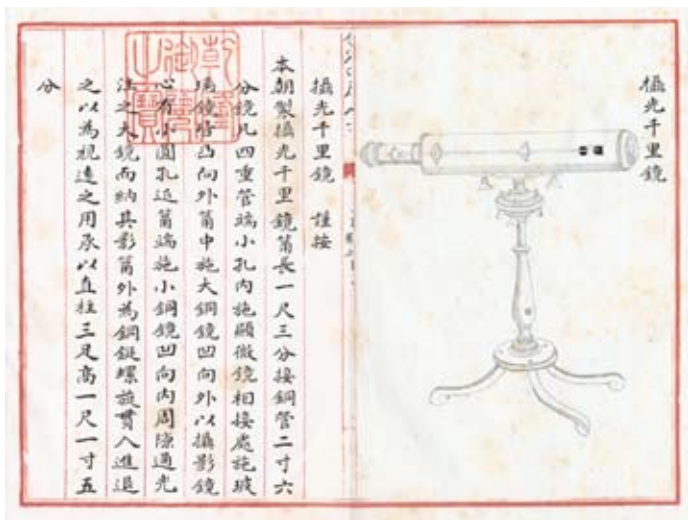 攝光千里鏡
攝光千里鏡 謹按
本朝製攝光千里鏡筩長一尺三分接銅管二寸六
分鏡凡四重管端小孔內施顯微鏡相接處施玻
璃鏡皆凸向外筩中施大銅鏡凹向外以攝影鏡
心有小圓孔近筩端施小銅鏡凹向內周隙通光
注之大鏡而納其影筩外為鋼鋌螺旋貫入進退
之以為視遠之用承以直柱三足高一尺一寸五
分
乾隆御覽之寶